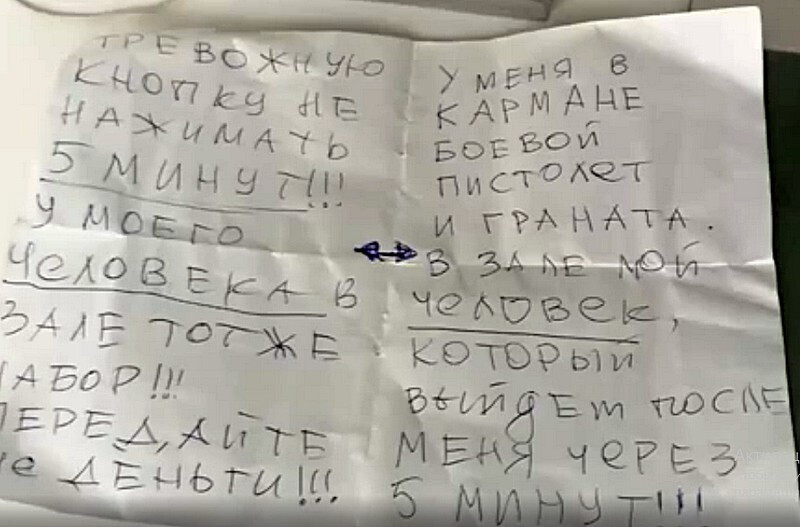 ТРЕВОЖНУЮ
КНОПКУ НЕ
НАЖИМАТЬ
5 МИНУТ!!!
У МОЕГО
ЧЕЛОВЕКА В
ЗАЛЕ ТОТЖЕ
НАБОР!!!
ПЕРЕДАЙТЕ
ДЕНЬГИ!!!
У МЕНЯ В
КАРМАНЕ
БОЕВОЙ
ПИСТОЛЕТ
И ГРАНАТА.
В ЗАЛЕ МОЙ
ЧЕЛОВЕК,
КОТОРЫЙ
ВЫЙДЕТ ПОСЛЕ
МЕНЯ ЧЕРЕЗ
5 МИНУТ!!!